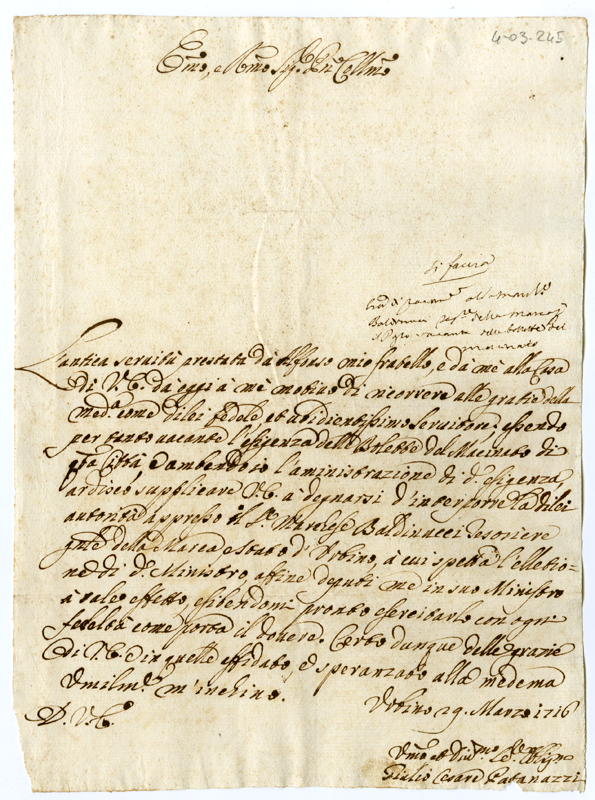 4-03-245
Emo, e Rmo Sig. Pne Collmo
Si faccia
al Sr. March.
Baldinucci della Marca
vacante delle bollette del
macinato
L'antica servitù prestata dà Alfonso mio fratello, e dà mè alla Casa
di V. E. dà oggi à mè motivo di ricorrere alle gratie della
med.a come di lei fedele et ubidientissimo servitore; essendo
per tanto vacante l'esigenza delle Bolette del Macinato di
qta Città, e ambendo io l'aministrazione di d.a esigenza,
ardisco supplicare V. E. à degnarsi d'interporre la di lei
autorità appresso il Sr. Marchese Baldinucci Tesoriere
gnle della Marca e Stato d'Urbino, à cui spetta l'elletio-
ne di d.o Ministro, affine deputi me in suo Ministro
à tale effetto, esibendomi pronto esercitarlo con ogni
fedeltà come porta il dovere. Certo dunque delle grazie
di V. E. e in quelle affidato, e speranzato alla medema
Umilmte m'inchino.
Urbino 29. Marzo 1716
D. V. E.
Umo et Divmo Se. Obligmo
Giulio Cesare Patanazzi